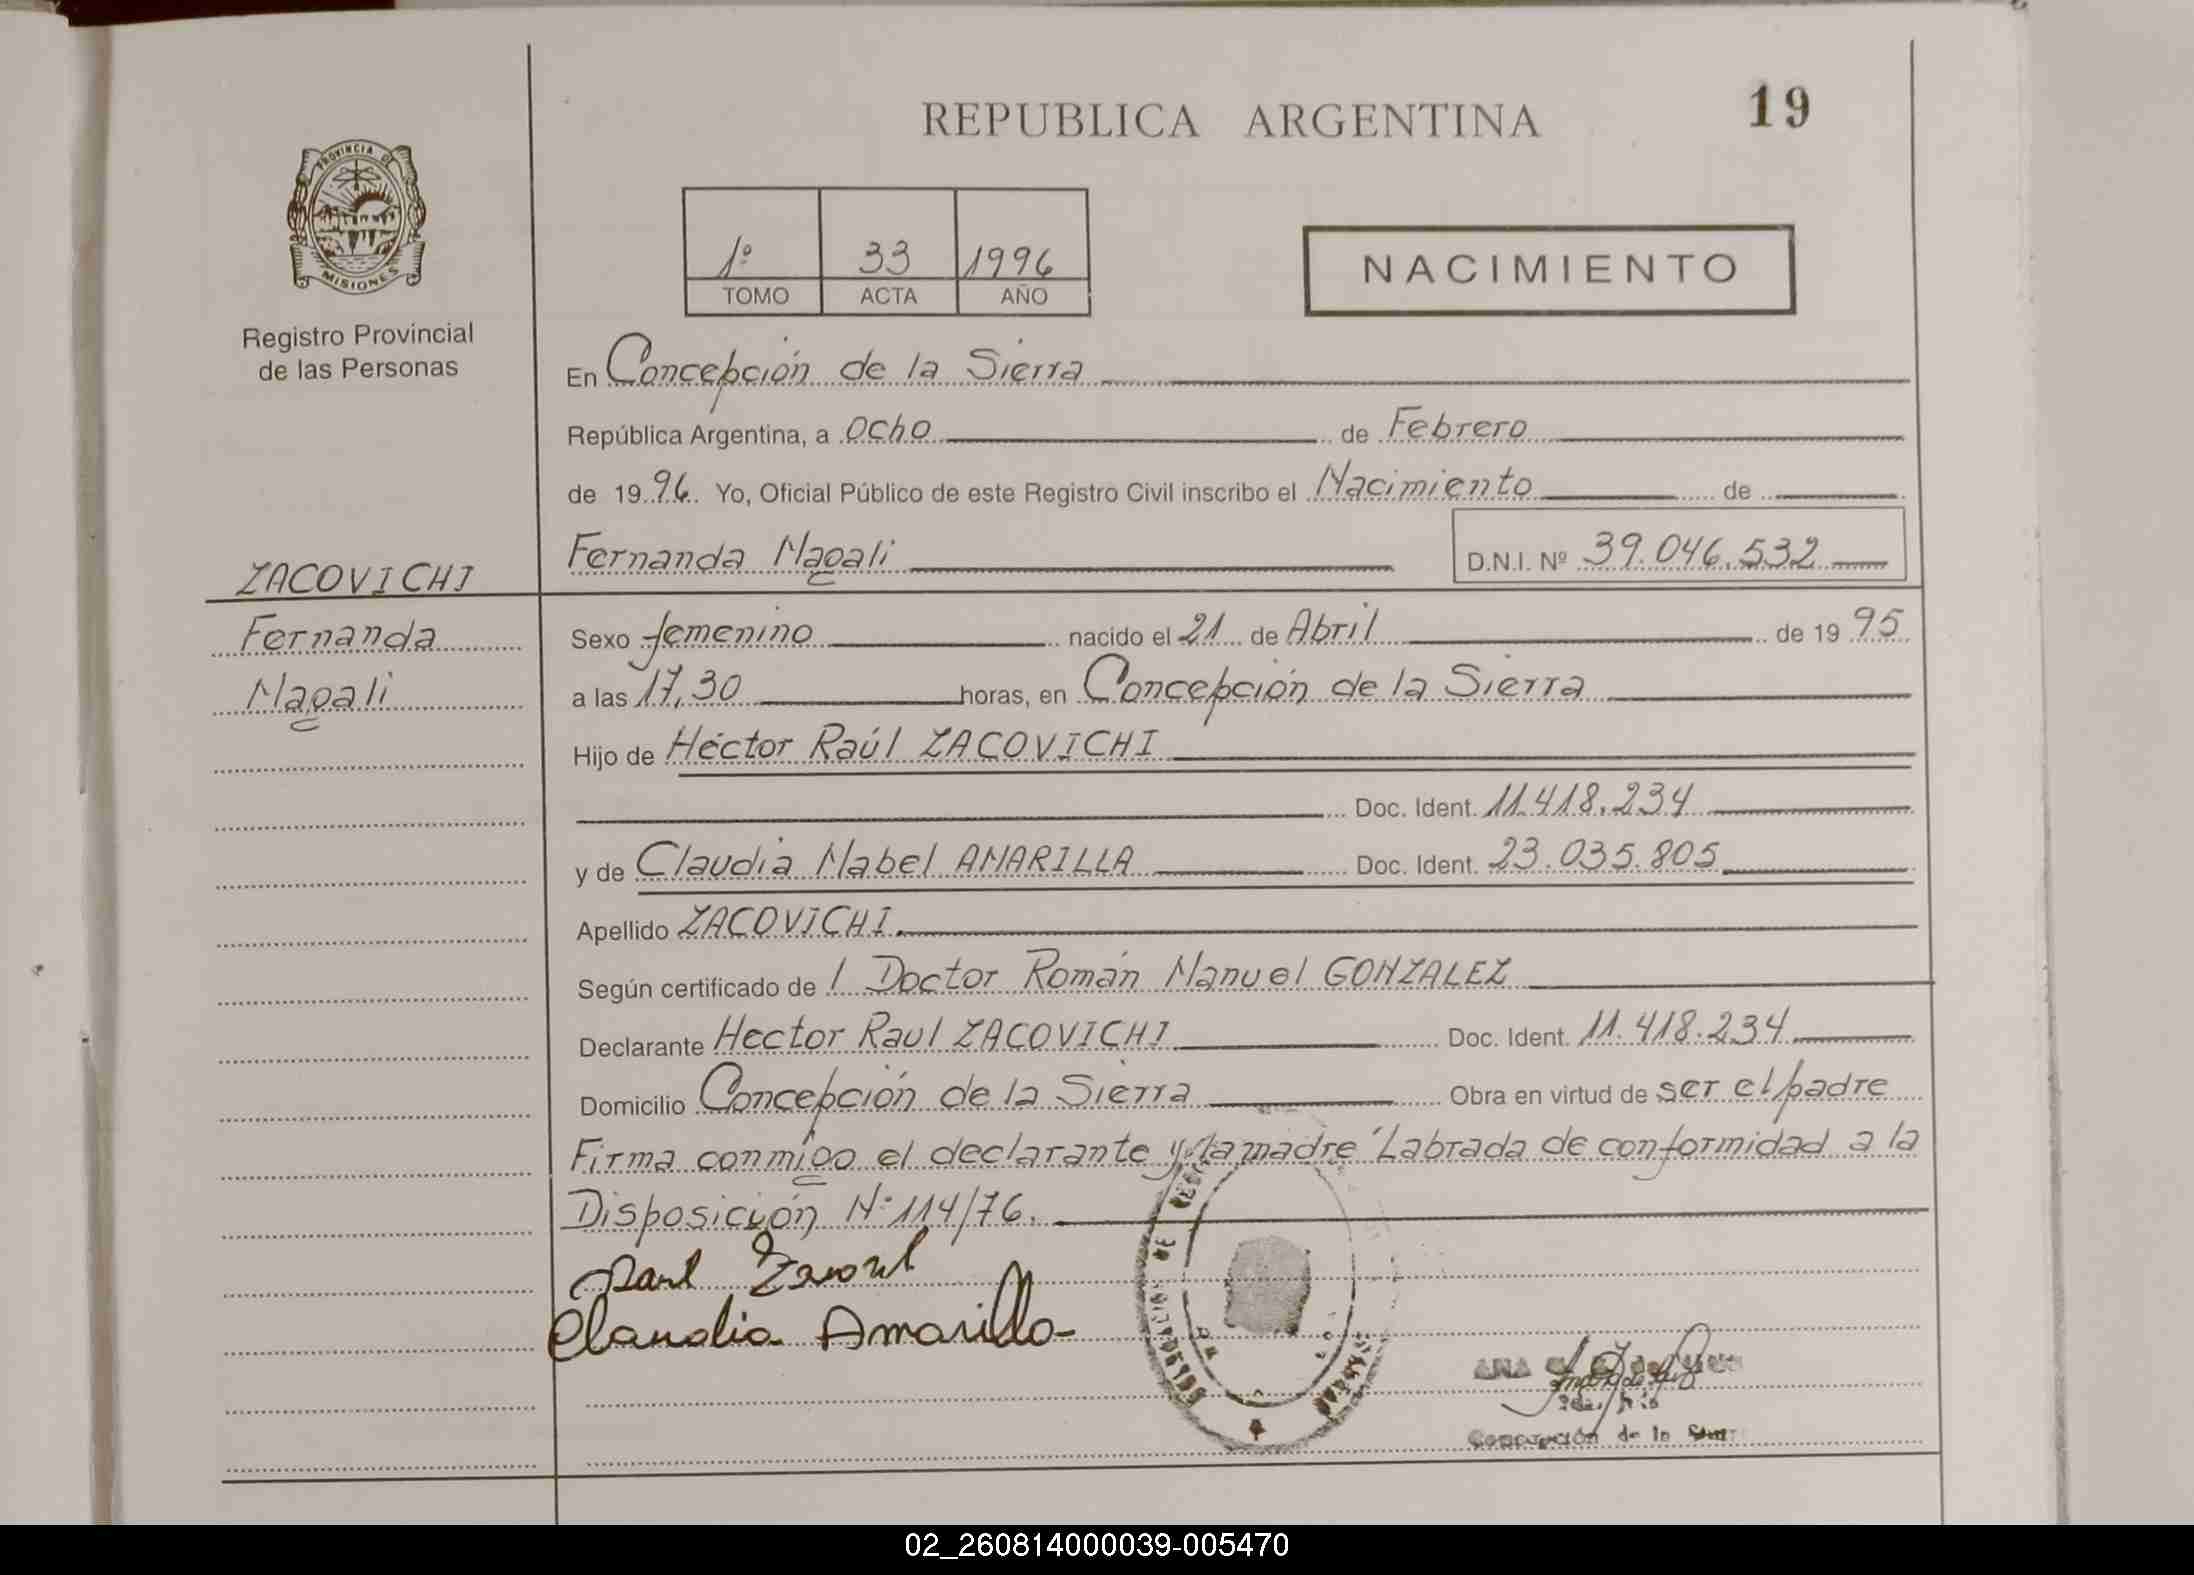 REPUBLICA ARGENTINA
19
PROVINCIA DE
MISIONES
Registro Provincial
de las Personas
1º 33 1996
TOMO ACTA AÑO
NACIMIENTO
En Concepción de la Sierra
República Argentina, a ocho de Febrero
de 1996. Yo, Oficial Público de este Registro Civil inscribo el Nacimiento de
Fernanda Magali D.N.I. Nº 39.046.532
ZACOVICHI
Fernanda
Magali
Sexo femenino nacido el 21 de Abril de 1995
a las 17,30 horas, en Concepción de la Sierra
Hijo de Héctor Raúl ZACOVICHI
Doc. Ident. 11.418.234
y de Claudia Mabel AMARILLA Doc. Ident. 23.035.805
Apellido ZACOVICHI.
Según certificado de l Doctor Román Manuel GONZALEZ
Declarante Hector Raul ZACOVICHI Doc. Ident. 11.418.234
Domicilio Concepción de la Sierra Obra en virtud de ser el padre
Firma conmigo el declarante y la madre Labrada de conformidad a la
Disposición Nº 114/76.
Raul
Claudia Amarilla
ANA
Concepción de la
02_260814000039-005470